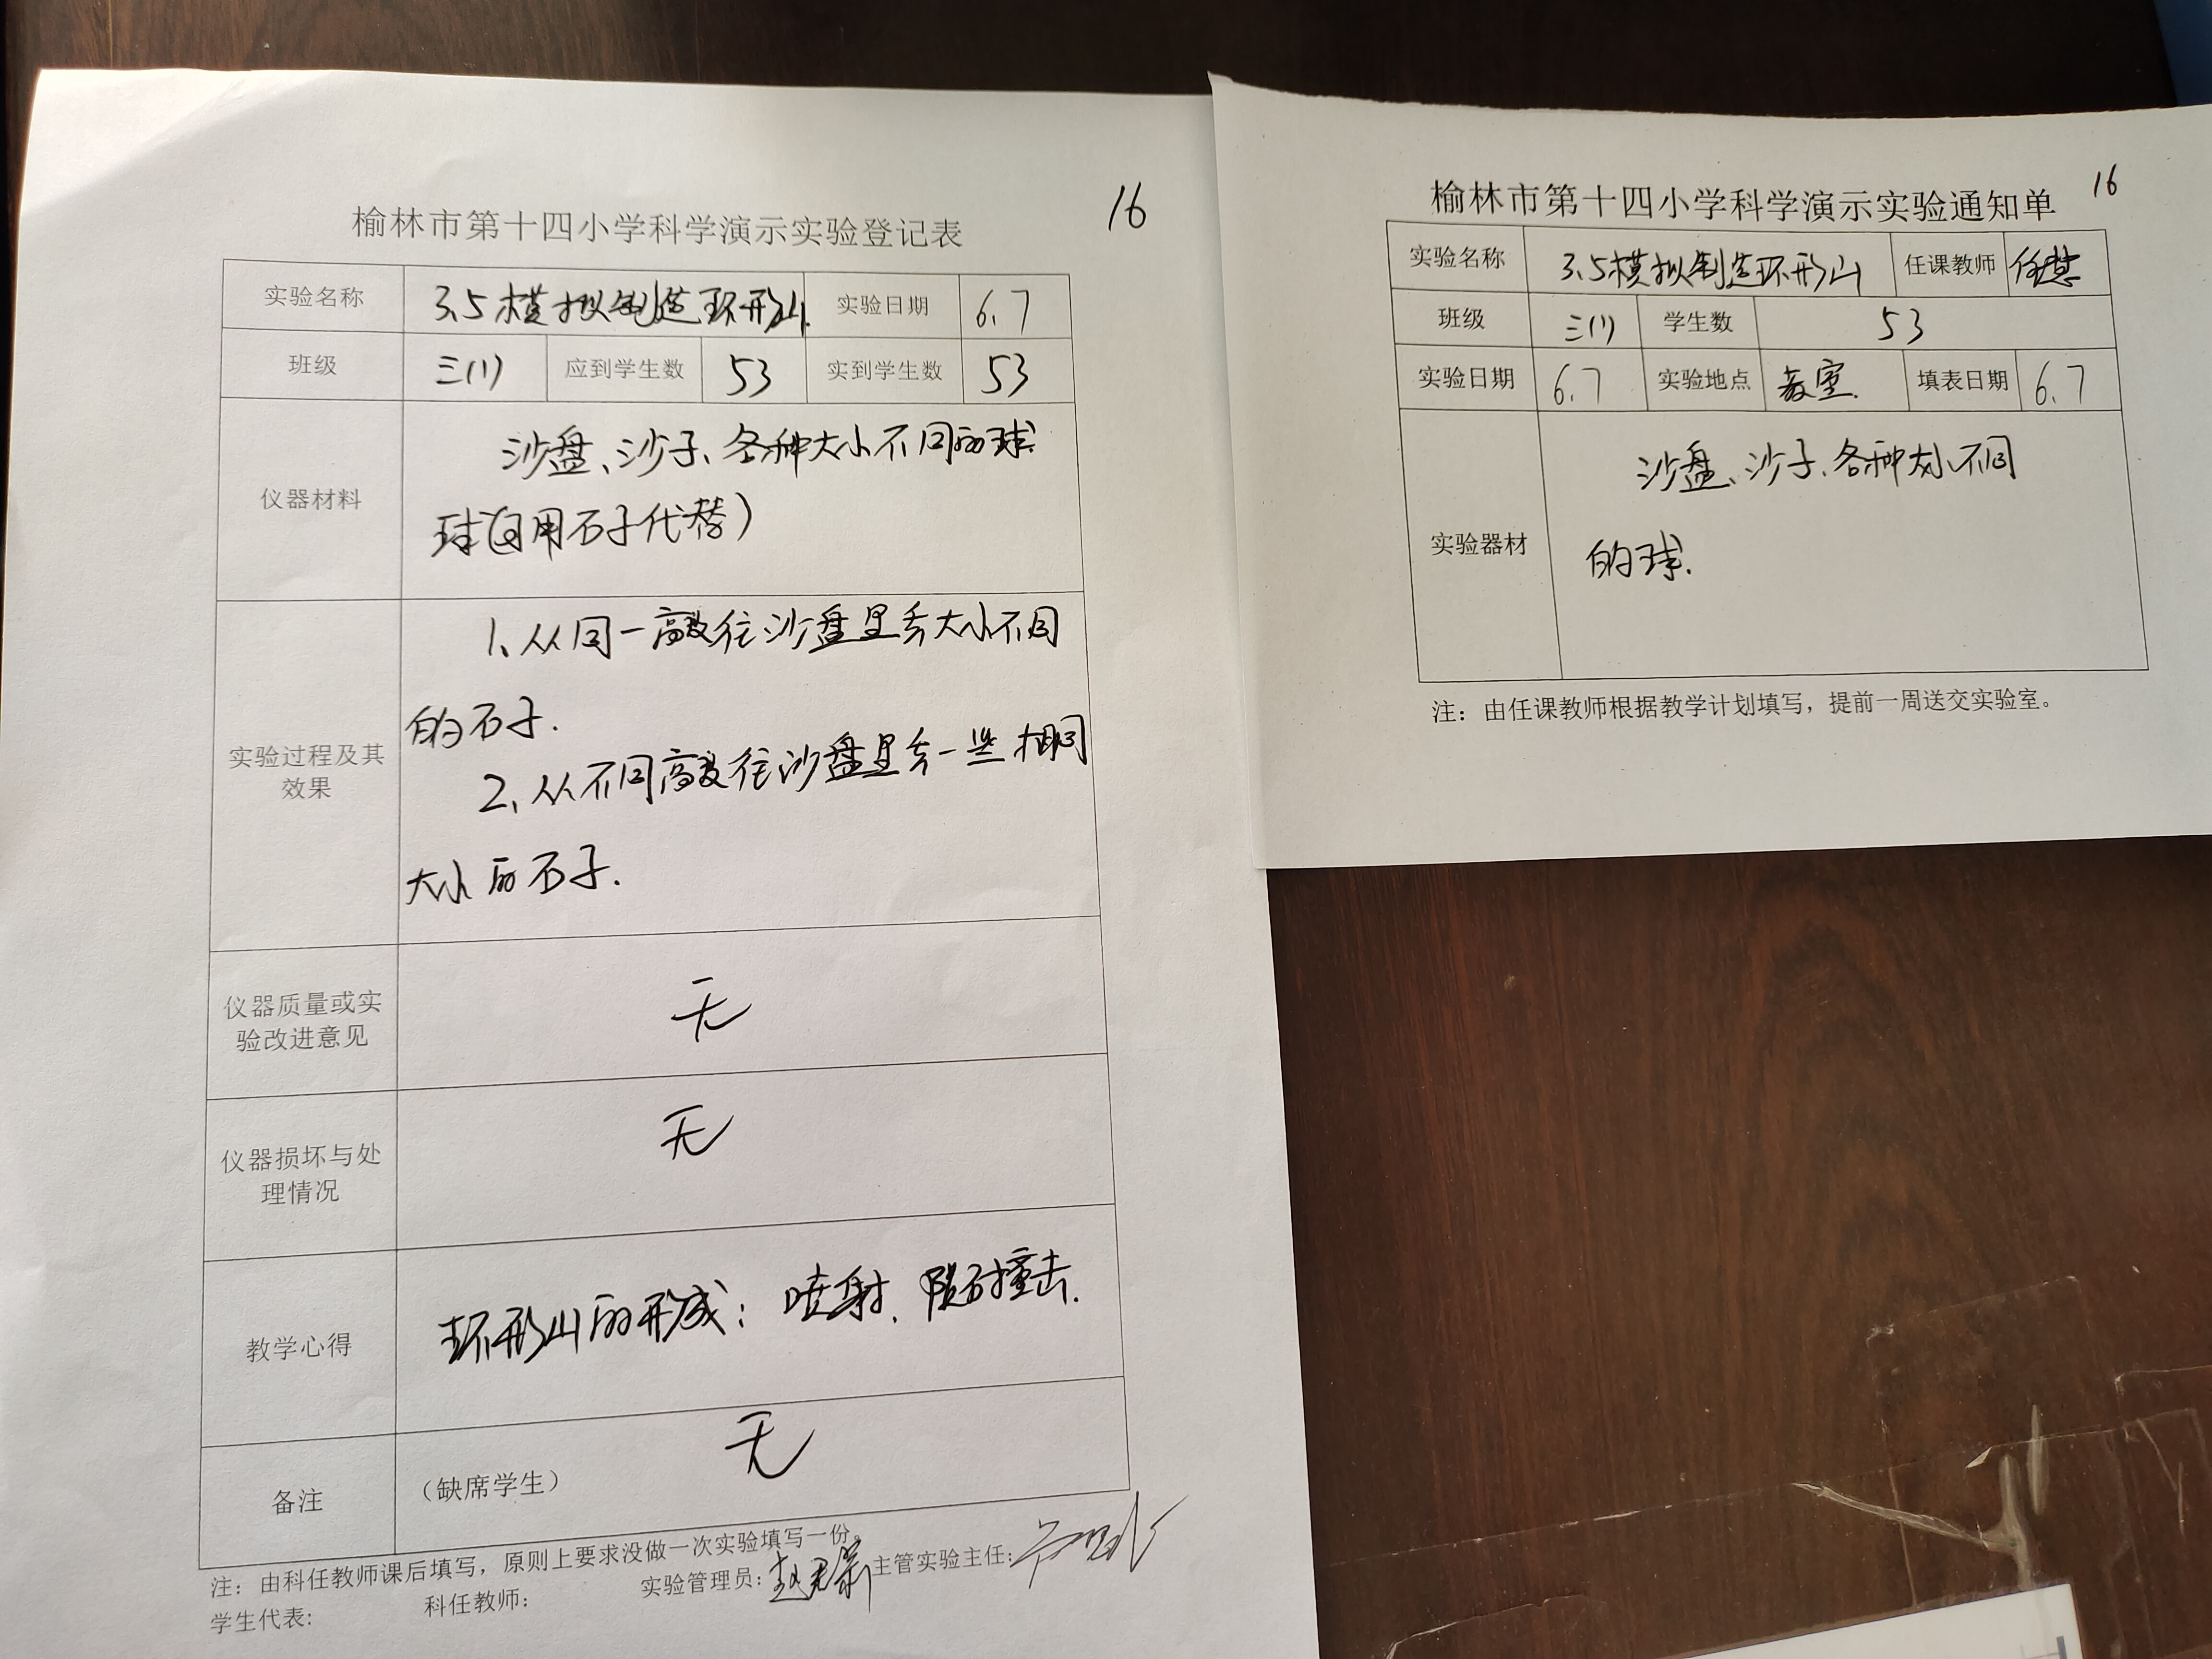 榆林市第十四小学科学演示实验登记表
16
实验名称 3.5模拟制造环形山 实验日期 6.7
班级 三(1) 应到学生数 53 实到学生数 53
仪器材料
沙盘、沙子、各种大小不同的球
球(自用石子代替)
实验过程及其
效果
1、从同一高度往沙盘里丢大小不同
的石子.
2、从不同高度往沙盘里丢一些相同
大小的石子.
仪器质量或实
验改进意见
无
仪器损坏与处
理情况
无
教学心得
环形山的形成：喷射、陨石撞击.
备注 （缺席学生） 无
注：由科任教师课后填写，原则上要求没做一次实验填写一份。
学生代表: 科任教师: 实验管理员: 主管实验主任:
榆林市第十四小学科学演示实验通知单
16
实验名称 3.5模拟制造环形山 任课教师
班级 三(1) 学生数 53
实验日期 6.7 实验地点 教室. 填表日期 6.7
实验器材
沙盘、沙子、各种大小不同
的球.
注：由任课教师根据教学计划填写，提前一周送交实验室。